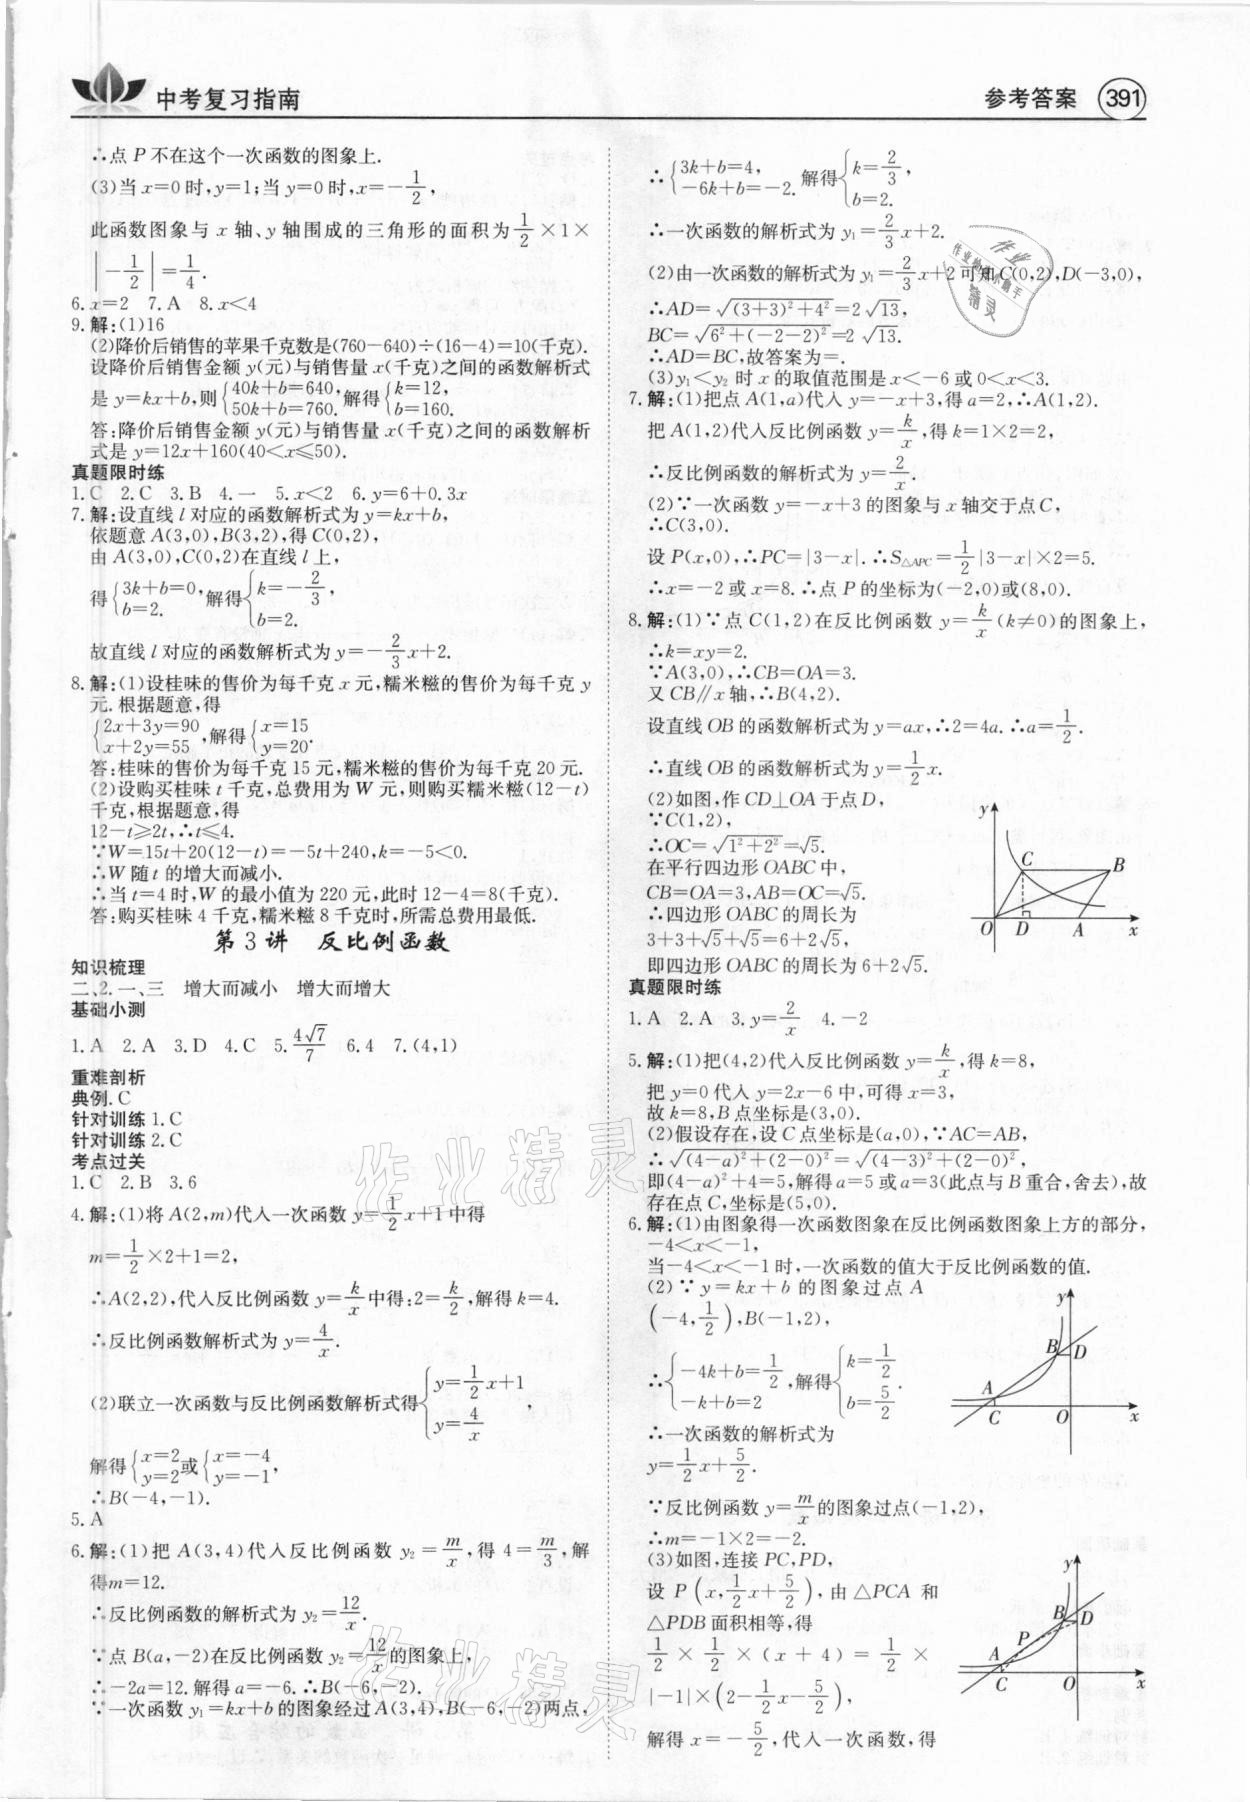 中考复习指南
参考答案 391
∴点 P 不在这个一次函数的图象上.
(3)当 x=0 时,y=1;当 y=0 时,x=-1/2,
此函数图象与 x 轴、y 轴围成的三角形的面积为1/2×1×
|-1/2|=1/4.
6. x=2 7. A 8. x<4
9. 解:(1)16
(2)降价后销售的苹果千克数是(760-640)÷(16-4)=10(千克).
设降价后销售金额 y(元)与销售量 x(千克)之间的函数解析式
是 y=kx+b,则{40k+b=640, 50k+b=760.解得{k=12, b=160.
答:降价后销售金额 y(元)与销售量 x(千克)之间的函数解析
式是 y=12x+160(40<x≤50).
真题限时练
1. C 2. C 3. B 4. 一 5. x<2 6. y=6+0.3x
7. 解:设直线 l 对应的函数解析式为 y=kx+b,
依题意 A(3,0),B(3,2),得 C(0,2),
由 A(3,0),C(0,2)在直线 l 上,
得{3k+b=0, b=2. 解得{k=-2/3, b=2.
故直线 l 对应的函数解析式为 y=-2/3x+2.
8. 解:(1)设桂味的售价为每千克 x 元,糯米糍的售价为每千克 y
元.根据题意,得
{2x+3y=90 x+2y=55 ,解得{x=15 y=20.
答:桂味的售价为每千克 15 元,糯米糍的售价为每千克 20 元.
(2)设购买桂味 t 千克,总费用为 W 元,则购买糯米糍(12-t)
千克,根据题意,得
12-t≥2t,∴t≤4.
∵W=15t+20(12-t)=-5t+240,k=-5<0.
∴W 随 t 的增大而减小.
∴当 t=4 时,W 的最小值为 220 元,此时 12-4=8(千克).
答:购买桂味 4 千克,糯米糍 8 千克时,所需总费用最低.
第 3 讲 反比例函数
知识梳理
二、2. 一、三 增大而减小 增大而增大
基础小测
1. A 2. A 3. D 4. C 5. 4√7/7 6. 4 7. (4,1)
重难剖析
典例. C
针对训练 1. C
针对训练 2. C
考点过关
1. C 2. B 3. 6
4. 解:(1)将 A(2,m)代入一次函数 y=1/2x+1 中得
m=1/2×2+1=2,
∴A(2,2),代入反比例函数 y=k/x中得:2=k/2,解得 k=4.
∴反比例函数解析式为 y=4/x.
(2)联立一次函数与反比例函数解析式得{y=1/2x+1 y=4/x ,
解得{x=2 y=2或{x=-4 y=-1,
∴B(-4,-1).
5. A
6. 解:(1)把 A(3,4)代入反比例函数 y₂=m/x,得 4=m/3,解
得m=12.
∴反比例函数的解析式为 y₂=12/x.
∵点 B(a,-2)在反比例函数 y₂=12/x的图象上,
∴-2a=12.解得 a=-6.∴B(-6,-2).
∵一次函数 y₁=kx+b的图象经过 A(3,4),B(-6,-2)两点,
∴{3k+b=4, -6k+b=-2. 解得{k=2/3, b=2.
∴一次函数的解析式为 y₁=2/3x+2.
(2)由一次函数的解析式为 y₁=2/3x+2 可知 C(0,2),D(-3,0),
∴AD=√((3+3)²+4²)=2√13,
BC=√(6²+(-2-2)²)=2√13.
∴AD=BC,故答案为=.
(3)y₁<y₂ 时 x 的取值范围是 x<-6 或 0<x<3.
7. 解:(1)把点 A(1,a)代入 y=-x+3,得 a=2,∴A(1,2).
把 A(1,2)代入反比例函数 y=k/x,得 k=1×2=2,
∴反比例函数的解析式为 y=2/x.
(2)∵一次函数 y=-x+3 的图象与 x 轴交于点 C,
∴C(3,0).
设 P(x,0),∴PC=|3-x|.∴S△APC=1/2|3-x|×2=5.
∴x=-2 或 x=8.∴点 P 的坐标为(-2,0)或(8,0).
8. 解:(1)∵点 C(1,2)在反比例函数 y=k/x(k≠0)的图象上,
∴k=xy=2.
∵A(3,0),∴CB=OA=3.
又 CB∥x 轴,∴B(4,2).
设直线 OB 的函数解析式为 y=ax,∴2=4a.∴a=1/2.
∴直线 OB 的函数解析式为 y=1/2x.
(2)如图,作 CD⊥OA 于点 D,
∵C(1,2),
∴OC=√(1²+2²)=√5.
在平行四边形 OABC 中,
CB=OA=3,AB=OC=√5.
∴四边形 OABC 的周长为
3+3+√5+√5=6+2√5,
即四边形 OABC 的周长为 6+2√5.
y
C B
O D A x
真题限时练
1. A 2. A 3. y=2/x 4. -2
5. 解:(1)把(4,2)代入反比例函数 y=k/x,得 k=8,
把 y=0 代入 y=2x-6 中,可得 x=3,
故 k=8,B 点坐标是(3,0).
(2)假设存在,设 C 点坐标是(a,0),∵AC=AB,
∴√((4-a)²+(2-0)²)=√((4-3)²+(2-0)²),
即(4-a)²+4=5,解得 a=5 或 a=3(此点与 B 重合,舍去),故
存在点 C,坐标是(5,0).
6. 解:(1)由图象得一次函数图象在反比例函数图象上方的部分,
-4<x<-1,
当-4<x<-1 时,一次函数的值大于反比例函数的值.
(2)∵y=kx+b 的图象过点 A
(-4,1/2),B(-1,2),
∴{-4k+b=1/2, -k+b=2 解得{k=1/2 b=5/2.
∴一次函数的解析式为
y=1/2x+5/2.
y
B D
A
C O x
∵反比例函数 y=m/x的图象过点(-1,2),
∴m=-1×2=-2.
(3)如图,连接 PC,PD,
设 P(x,1/2x+5/2),由△PCA 和
△PDB 面积相等,得
1/2×1/2×(x+4)=1/2×
|-1|×(2-1/2x-5/2),
解得 x=-5/2,代入一次函数,得
y
B D
P
A
C O x
作业精灵
作业精灵
作业
作业检查小助手
精灵